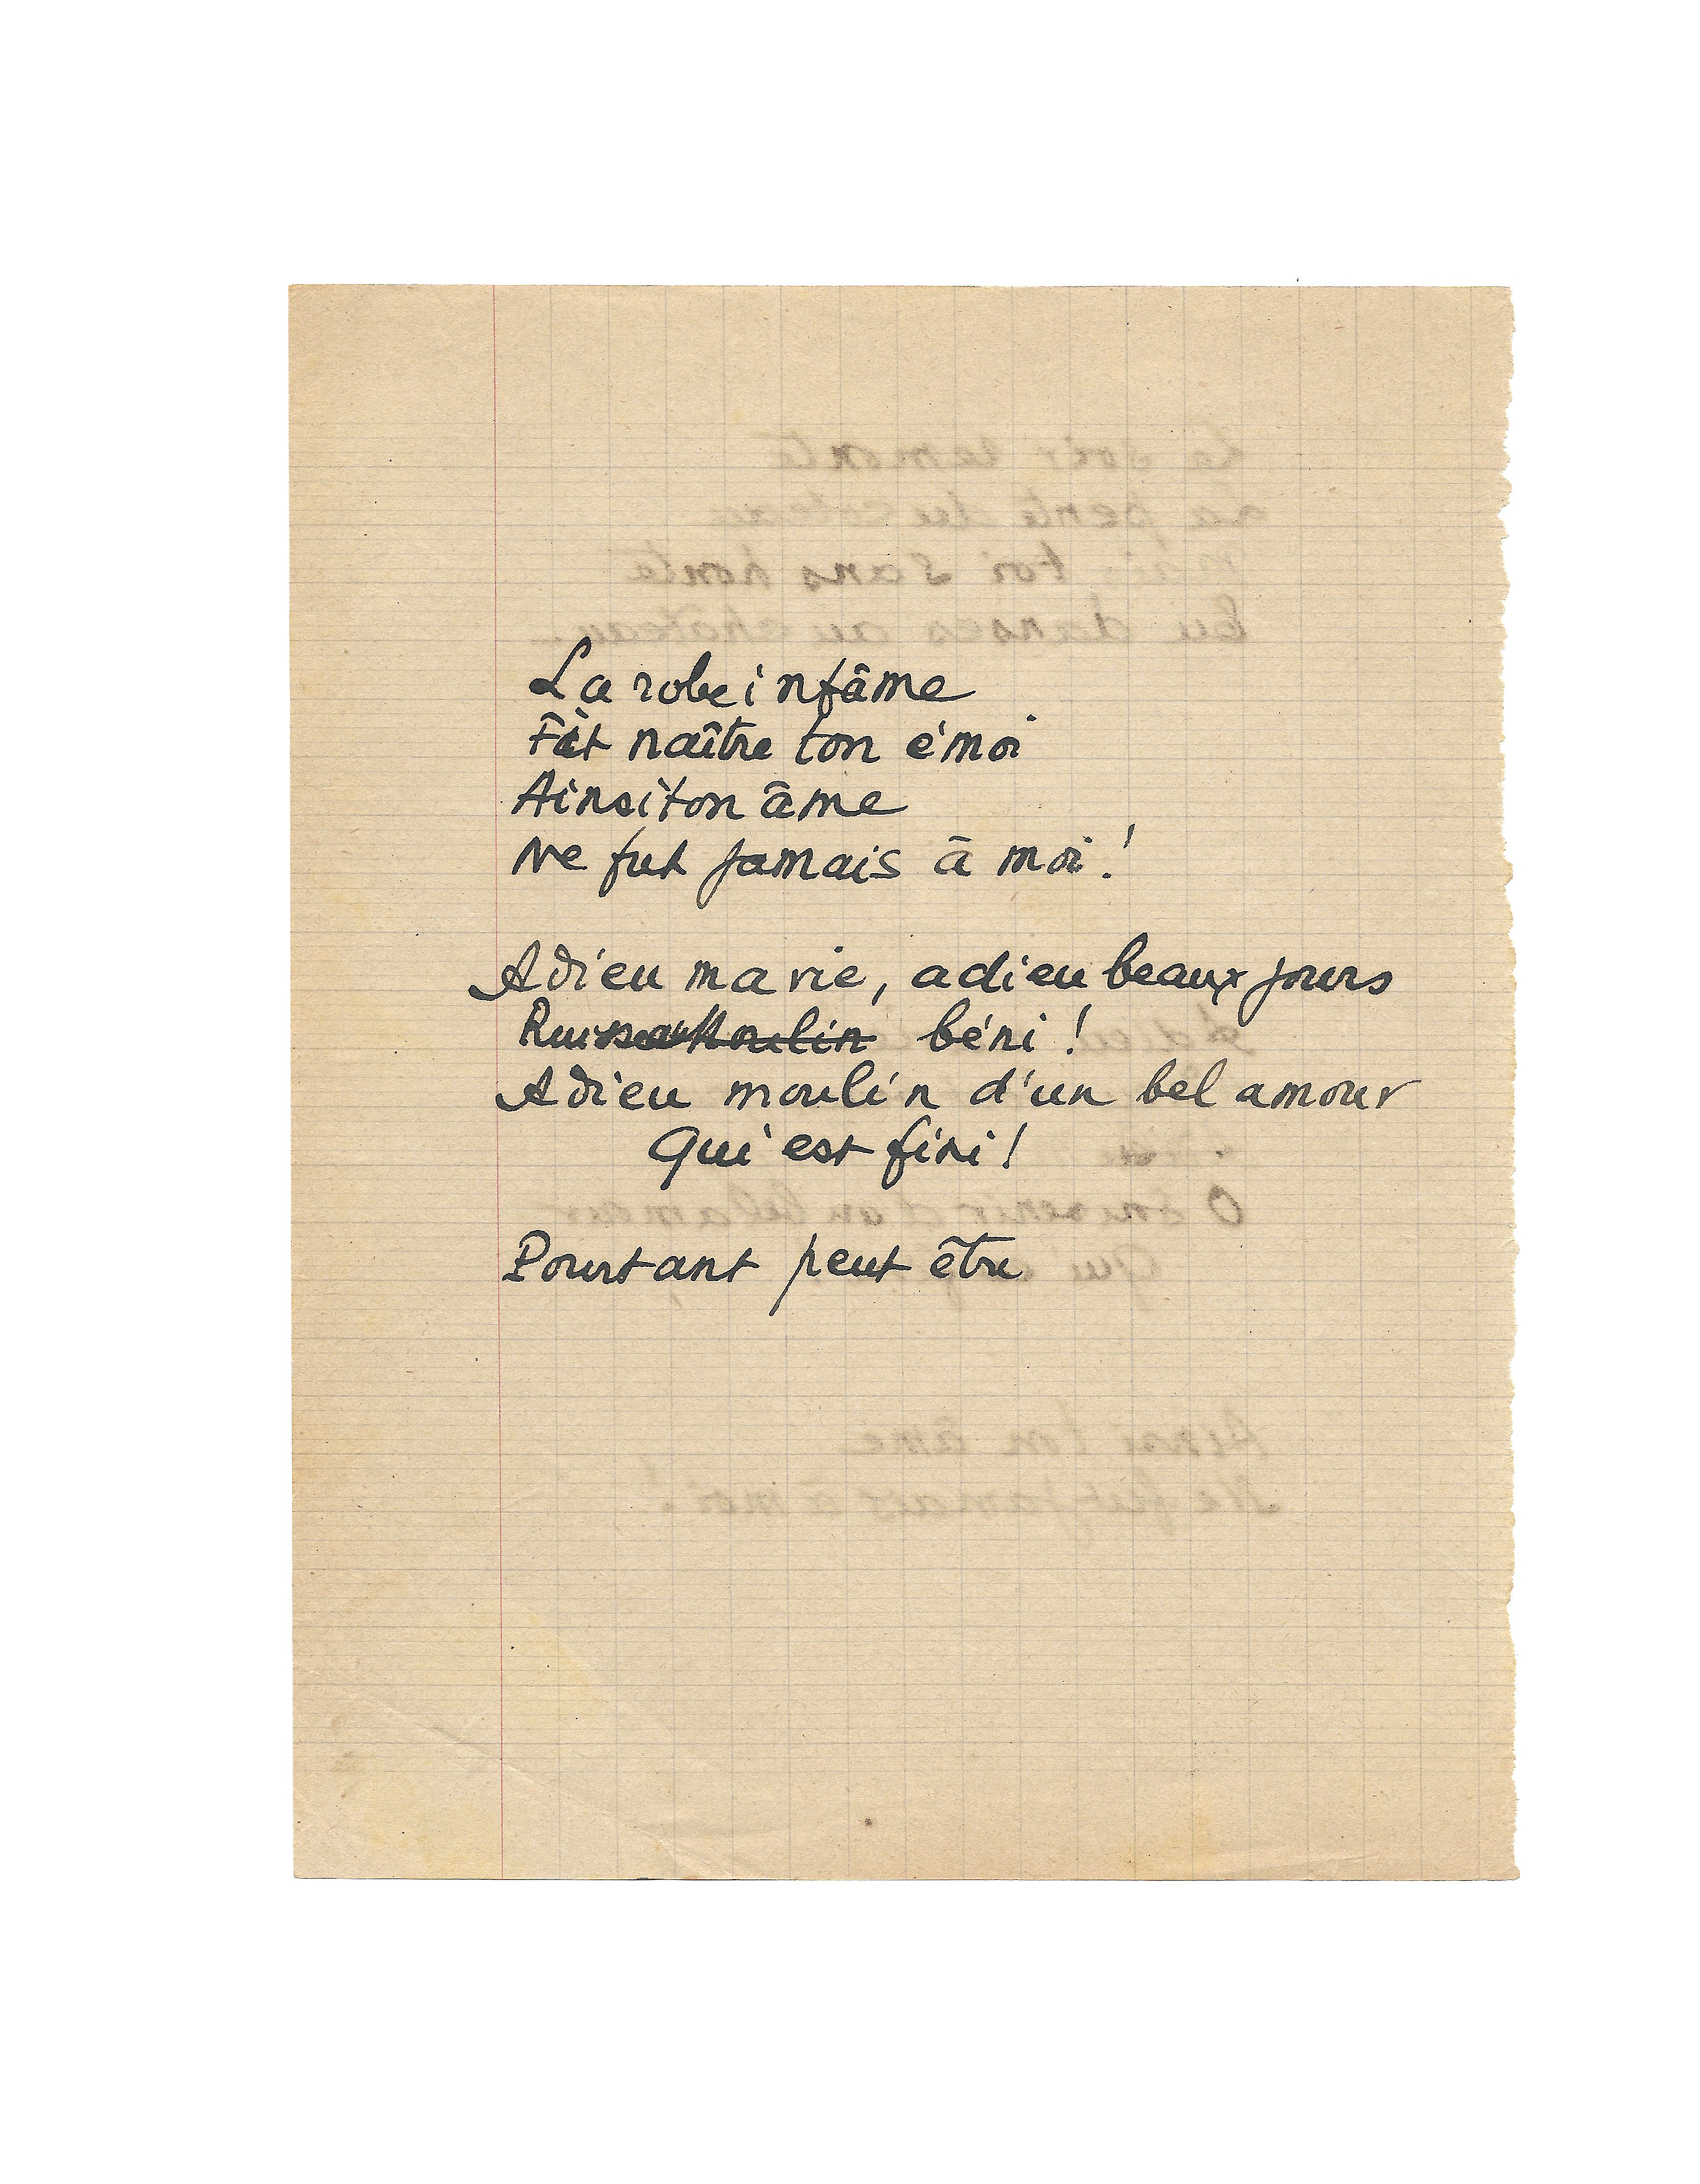 La robe infâme
Fit naître ton émoi
Ainsi ton âme
Ne fut jamais à moi !
Adieu ma vie, adieu beaux jours
Ruisseau Moulin béni !
Adieu moulin d'un bel amour
Qui est fini !
Pourtant peut être